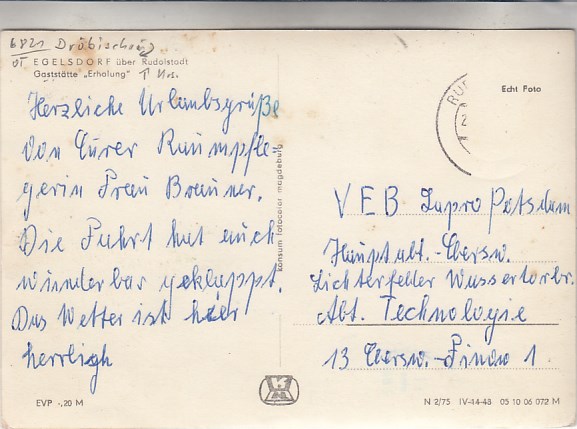 6821 Dröbischau
OT EGELSDORF über Rudolstadt
Gaststätte „Erholung"
Herzliche Urlaubsgrüße
von Eurer Raumpfle-
gerin Frau Brauner.
Die Fahrt hat auch
wunderbar geklappt.
Das Wetter ist hier
herrligh
EVP -,20 M
konsum fotocolor magdeburg
RUD
Echt Foto
VEB Lapro Potsdam
Hauptabt. - Ebersw.
Lichterfelder Wassertorbr.
Abt. Technologie
13 Ebersw.-Finow 1
N 2/75 IV-14-48 05 10 06 072 M